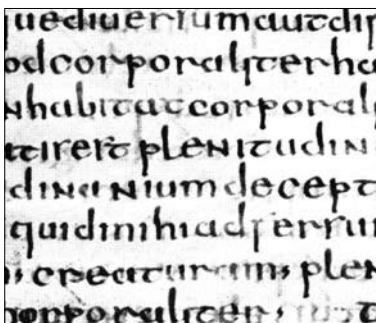 uediuersumautdis
odcorporaliterha
nhabitatcorporal
plenitudin
dinanium decept
quidinihiadserru
creaturam; plen
corporaliter;